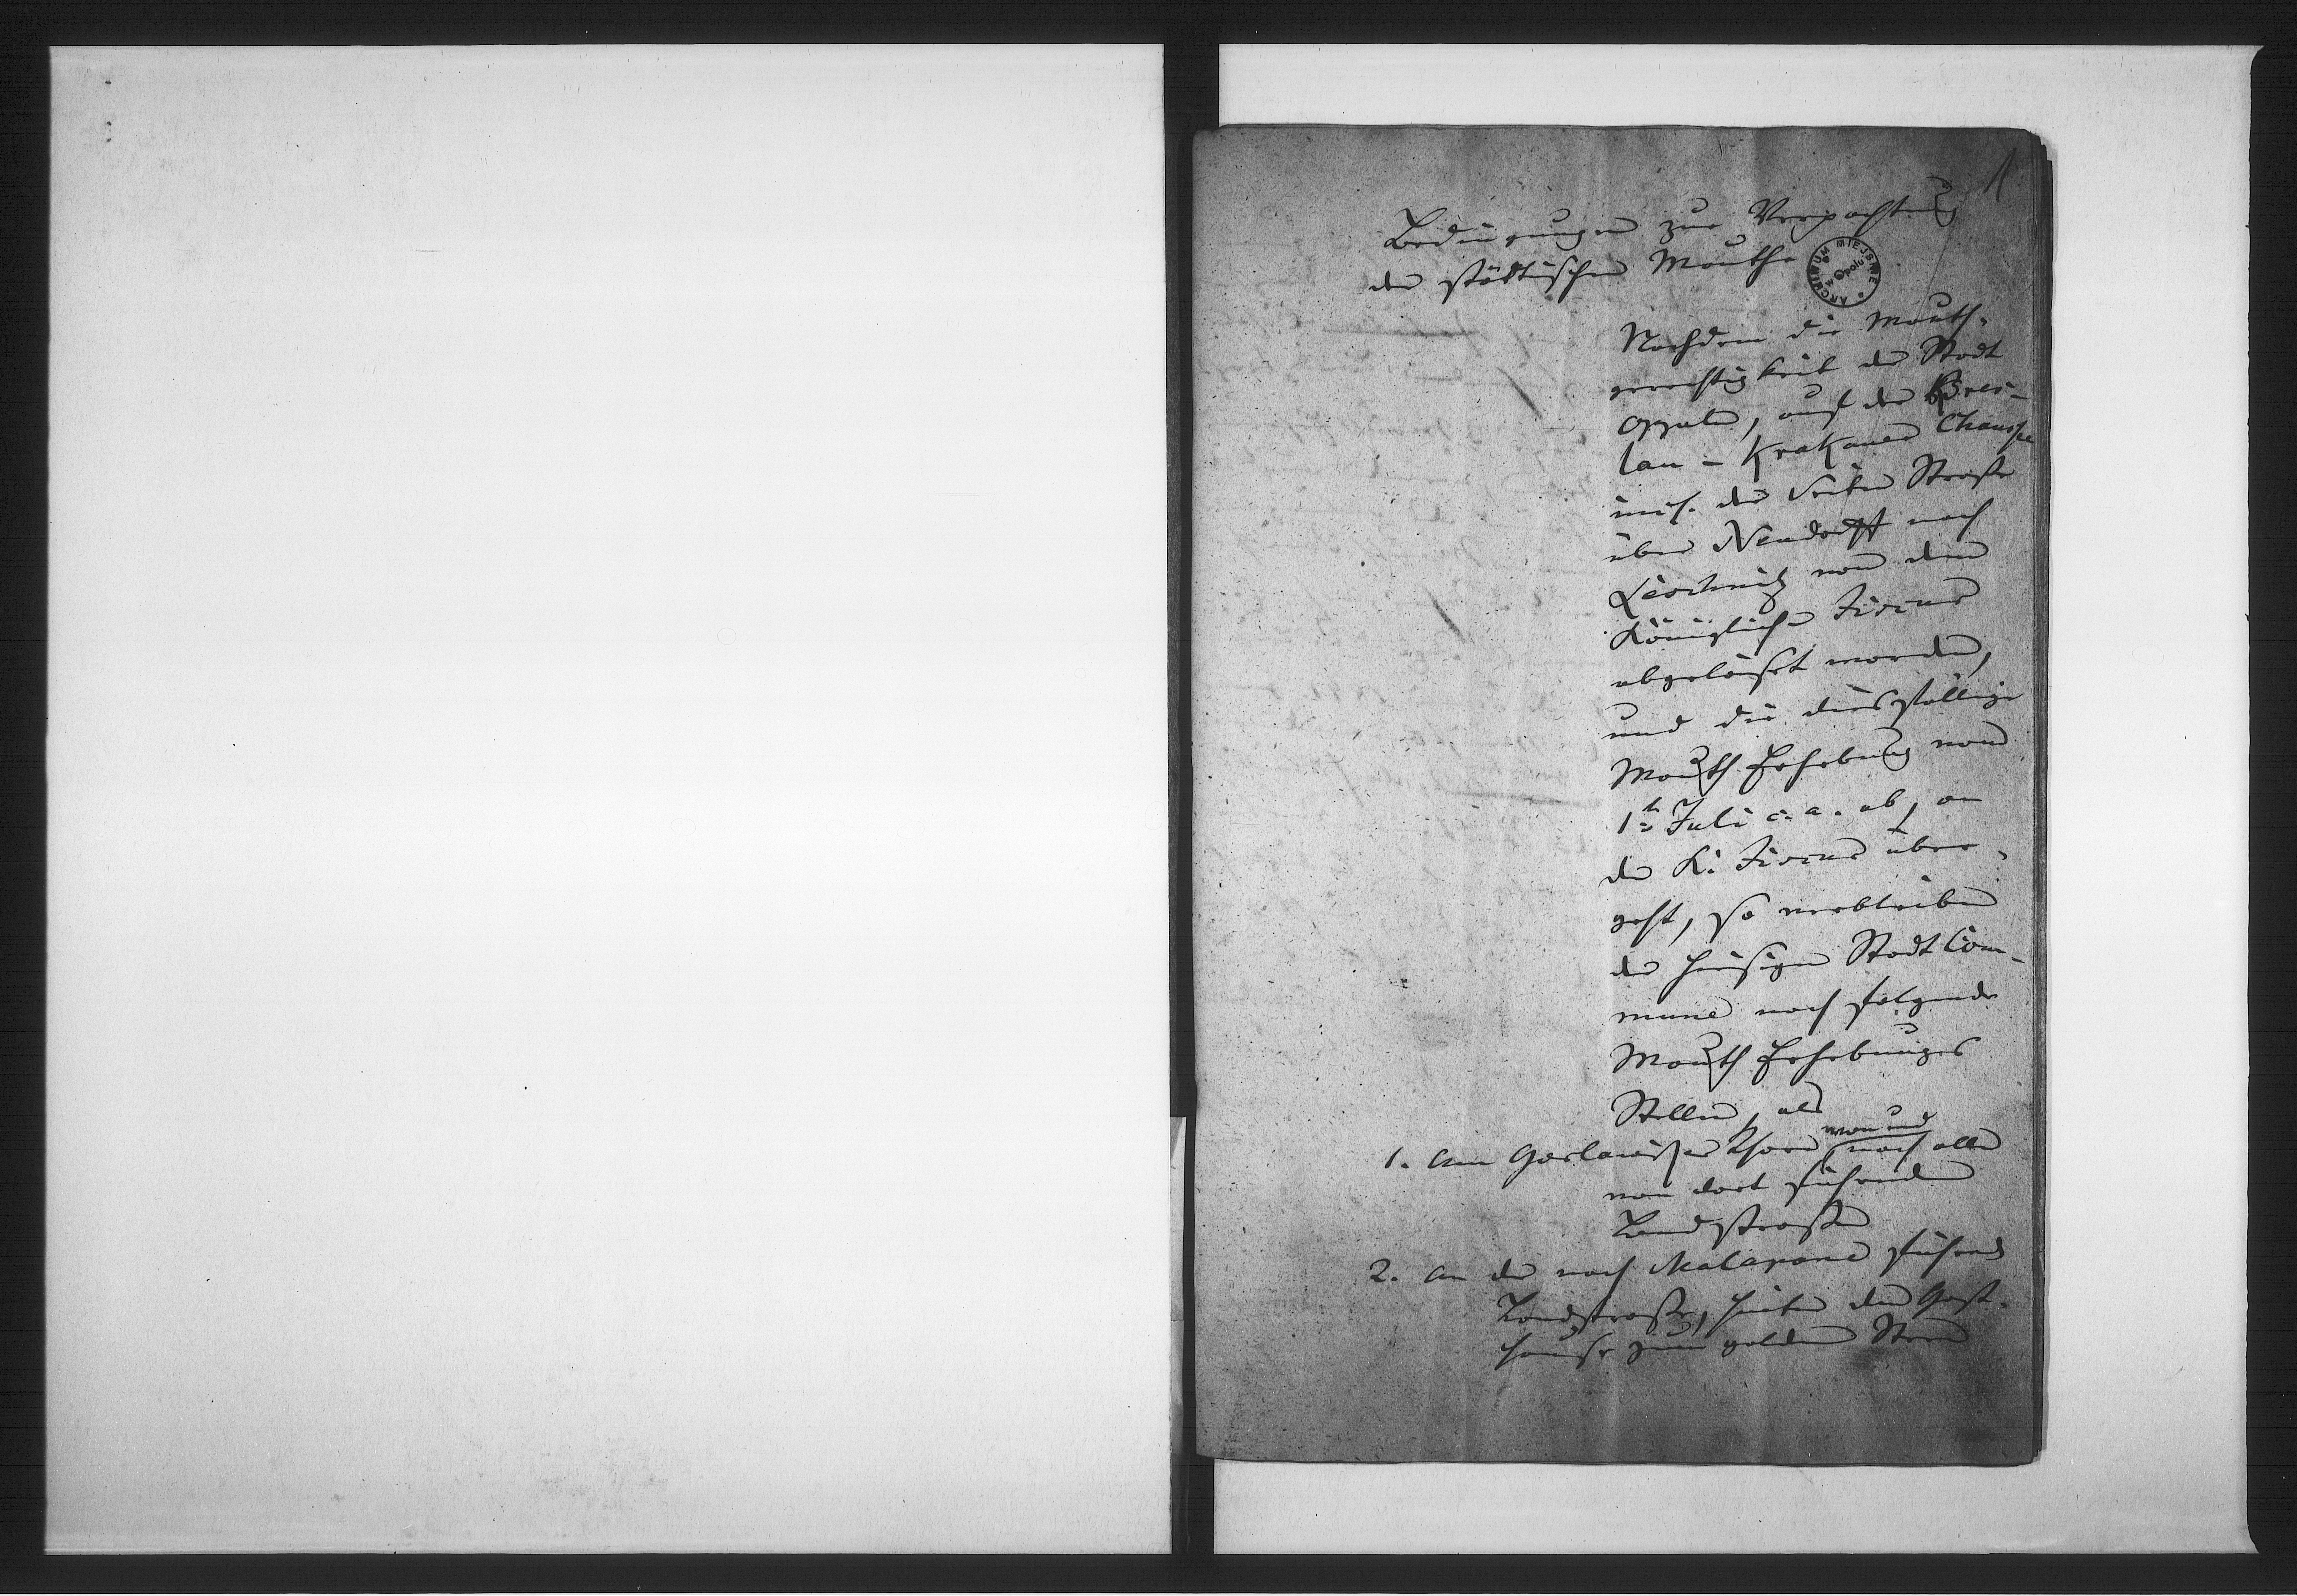 1
Bedingungen zur Verpachtung
der städtischen Mauthe
ARCHIWUM MIEJSKIE w Opolu
Nachdem die Mauth-
gerechtigkeit der Stadt
Oppeln, auf der Bres-
lau - Krakauer Chaussee
incl. der Seiten Straße
über Neudorff nach
Leschnitz von dem
Königlichen Fiscus
abgelöset worden,
und die diesfällige
Mauth Erhebung vom
1t Juli c. a. ab, an
den K. Fiscus über-
geht, so verbleiben
der hiesigen Stadt Com-
mune noch folgende
Mauth Erhebungs
Stellen, als
von und
1. Am Goslawitzer Thore nach allen
von dort führenden
Landstraßen
2. An der nach Malapane führend
Landstraße, hinter dem Gast-
hause zum goldenen Stern